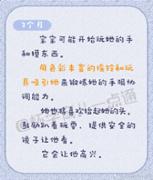 3个月
宝宝可能开始玩她的手
和摸东西。
用色彩丰富的摇铃和玩
具吸引她来锻炼她的手眼协
调能力。
她也将喜欢抬起她的头，
鼓励趴着玩耍，提供安全的
镜子让他看。
它会让他高兴。